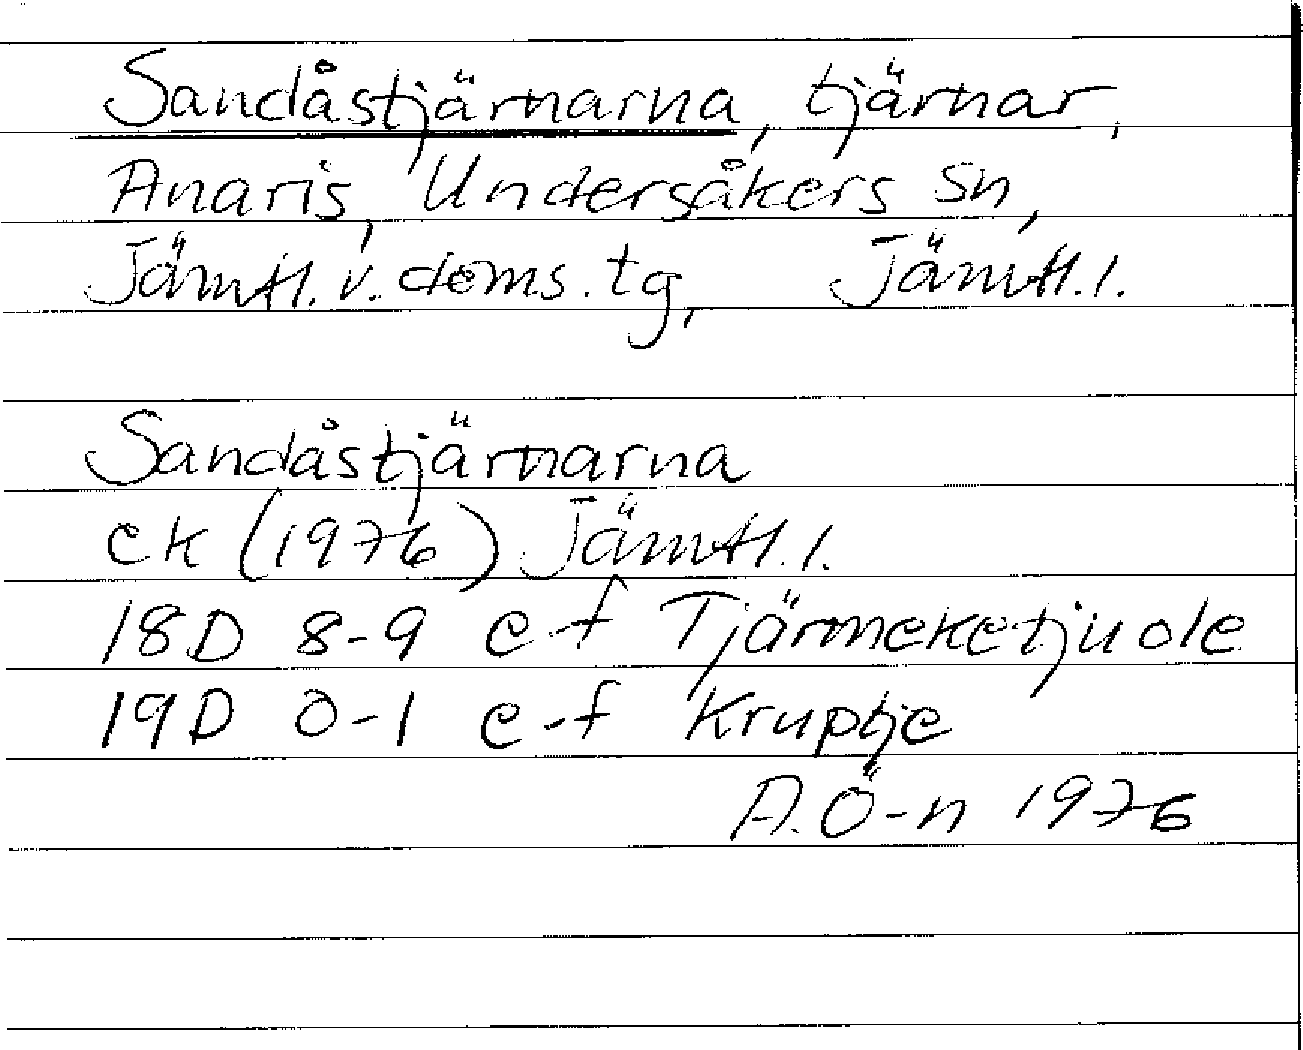 Sandåstjärnarna, tjärnar,
Anaris, Undersåkers sn,
Jämtl. v. doms. tg, Jämtl. l.
Sandåstjärnarna
ek (1976) Jämtl. l.
18D 8-9 e-f Tjärmeketjuole
19D 0-1 e-f Kruptje
A. Ö-n 1976